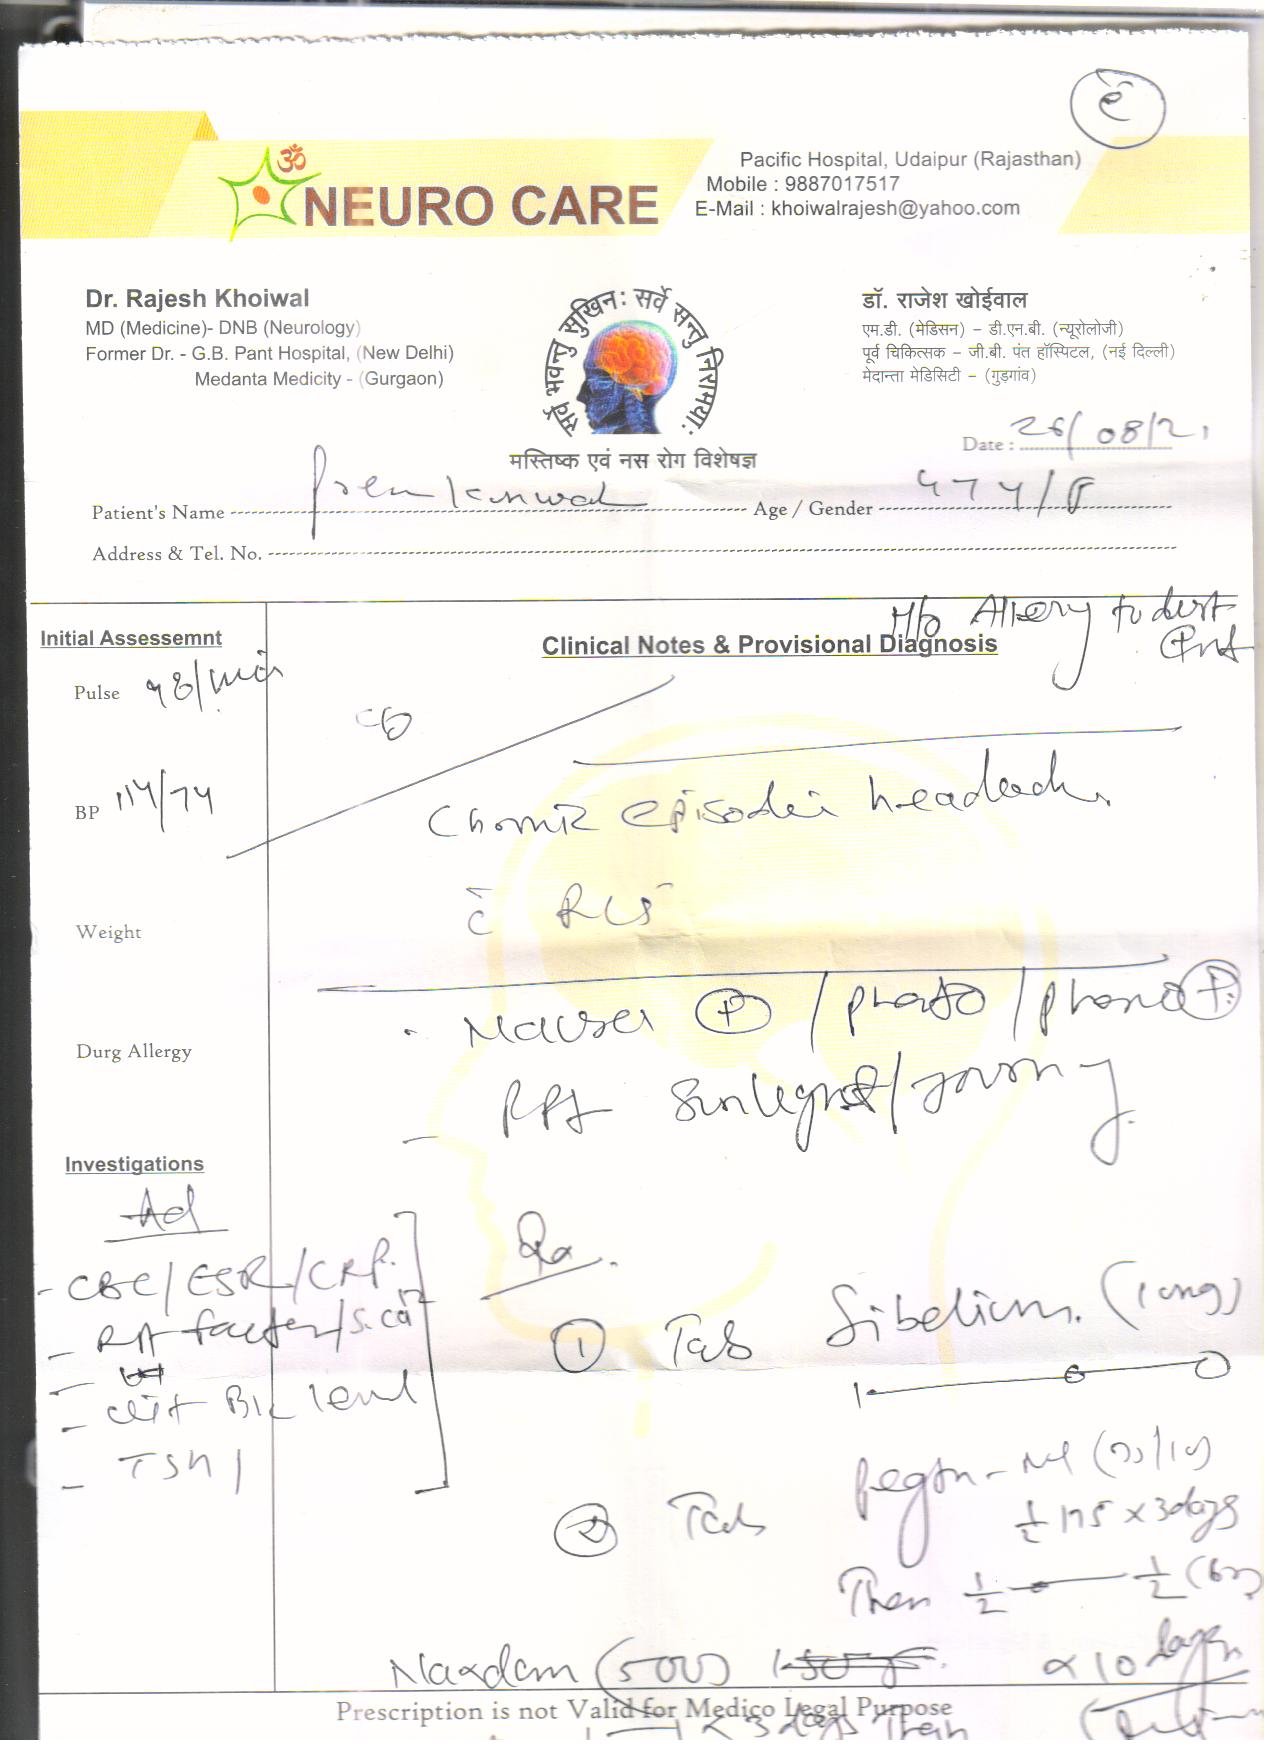 ē
ॐ
NEURO CARE
Pacific Hospital, Udaipur (Rajasthan)
Mobile : 9887017517
E-Mail : khoiwalrajesh@yahoo.com
Dr. Rajesh Khoiwal
MD (Medicine)- DNB (Neurology)
Former Dr. - G.B. Pant Hospital, (New Delhi)
Medanta Medicity - (Gurgaon)
सर्वे भवन्तु सुखिनः सर्वे सन्तु निरामयाः
मस्तिष्क एवं नस रोग विशेषज्ञ
डॉ. राजेश खोईवाल
एम.डी. (मेडिसन) – डी.एन.बी. (न्यूरोलोजी)
पूर्व चिकित्सक – जी.बी. पंत हॉस्पिटल, (नई दिल्ली)
मेदान्ता मेडिसिटी – (गुड़गांव)
Date : 26/08/21
Patient's Name Prem Kanwar Age / Gender 47y/F
Address & Tel. No.
H/o Allergy to dust
Initial Assessemnt
Clinical Notes & Provisional Diagnosis
Pulse 98/min
c/o
BP 114/74
Chronic episodic headache
Weight
c̄
Nausea (+) / photo / phono (+)
Durg Allergy
Sunlight/journey
Investigations
Ad
Rx
- CBC/ESR/CRP.
- RA factor/S. Ca
- Vit B12 level
- TSH
① Tab Sibelium. (10mg)
② Tab
1/2 x 3days
Then 1/2 — 1/2
Naxdom (500)
x 10 days
Prescription is not Valid for Medico Legal Purpose
x 3 days Then